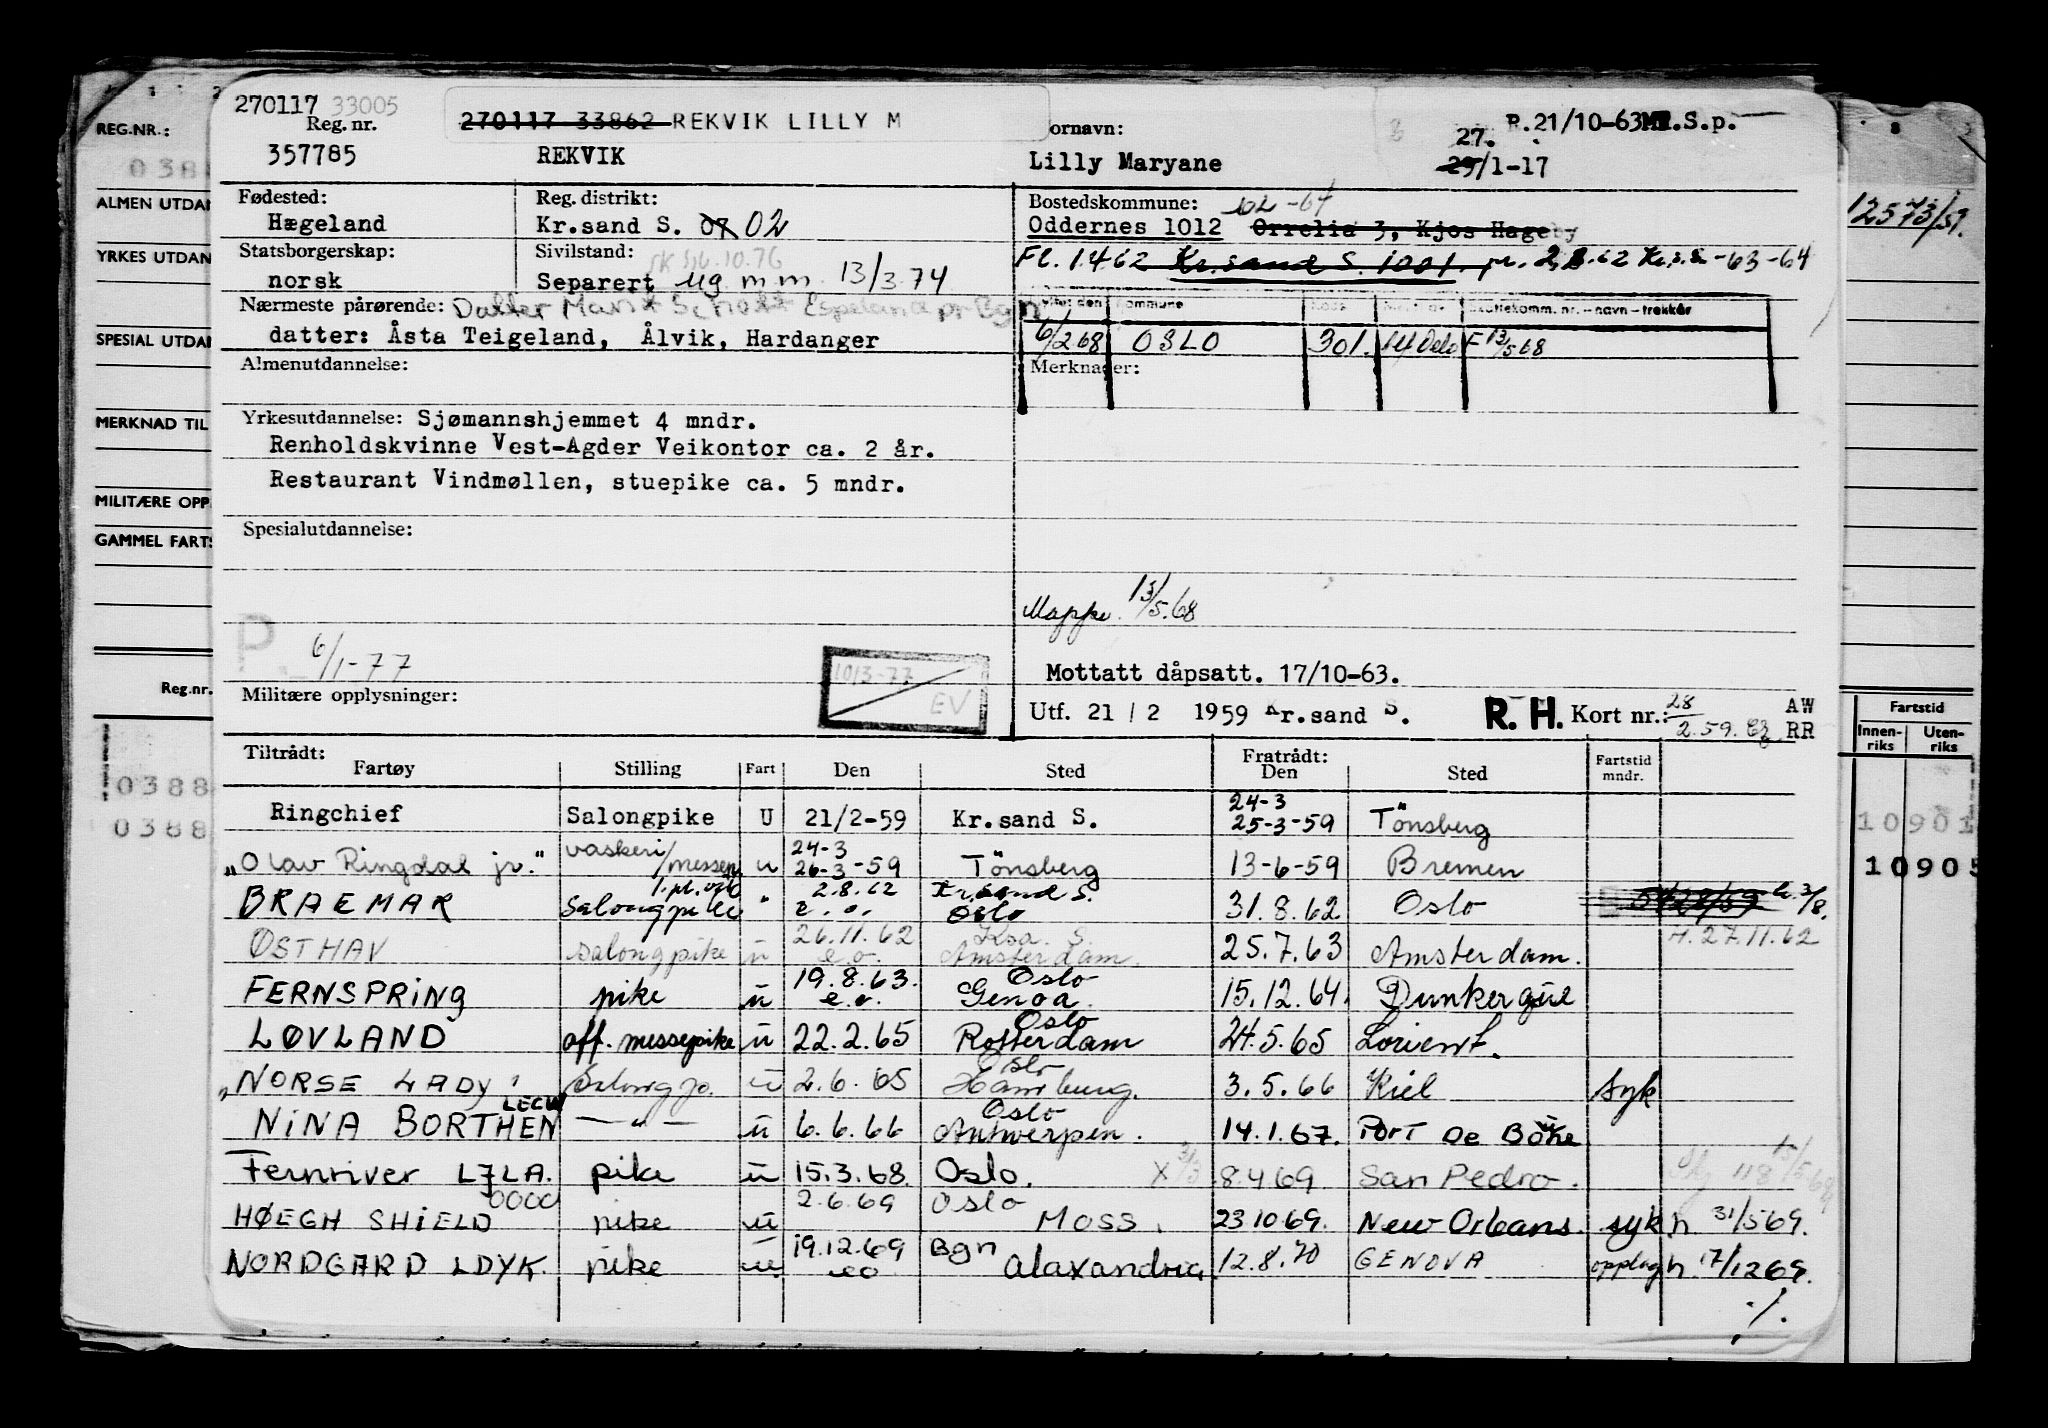 270117 33005
270117 33862 REKVIK LILLY M
R.21/10-63 S.p.
REG.NR.:
Reg. nr.
ornavn:
27.
357785 REKVIK Lilly Maryane 29/1-17
038
ALMEN UTDAN
Fødested: Reg. distrikt: Bostedskommune: 102-64
Hægeland Kr.sand S. 07 02 Oddernes 1012 Orrelia 3, Kjos Hageby
12573/59.
YRKES UTDAN
Statsborgerskap: Sivilstand: 6.10.76
Fl. 1.4.62 Kr.sand S. 1001. -63-64
norsk Separert ug m m 13/3.74
Nærmeste pårørende: Datter Marit
datter: Åsta Teigeland, Ålvik, Hardanger
ommune
ttekomm. nr. - navn - trekkår
6/2 68 OSLO 301. Oslo F 13/5 68
SPESIAL UTDAN
Almenutdannelse:
Merknader:
MERKNAD TIL
Yrkesutdannelse: Sjømannshjemmet 4 mndr.
Renholdskvinne Vest-Agder Veikontor ca. 2 år.
Restaurant Vindmøllen, stuepike ca. 5 mndr.
MILITÆRE OPP
Spesialutdannelse:
GAMMEL FARTS
Mappe. 13/5.68
P. 6/1-77
1013-77
EV
Mottatt dåpsatt. 17/10-63.
Reg.nr.
Militære opplysninger:
Utf. 21 / 2 1959 Kr.sand S. R. H. Kort nr.: 28/2.59. AW RR
Fartstid
Innen-riks Uten-riks
Tiltrådt: Fratrådt:
Fartøy Stilling Fart Den Sted Den Sted Fartstid mndr.
0388
0388
10901
10905
Ringchief Salongpike U 21/2-59 Kr.sand S. 24-3 25-3-59 Tönsberg
"Olav Ringdal jr." vaskeri/messep. u 24-3 26-3-59 Tönsberg 13-6-59 Bremen
BRAEMAR salongpike " 2.8.62 e.o. Kr.sand S. Oslo 31.8.62 Oslo
ØSTHAV salongpike u 26.11.62 e.o. Ksa. S. Amsterdam. 25.7.63 Amsterdam. H. 27.11.62
FERNSPRING pike u 19.8.63. e.o. Oslo Genoa. 15.12.64. Dunkerque
LØVLAND off. messepike u 22.2.65 Oslo Rotterdam 24.5.65 Lorient.
"NORSE LADY" Salongp. u 2.6.65 Oslo Hamburg. 3.5.66 Kiel syk
NINA BORTHEN LECW — " — u 6.6.66 Oslo Antwerpen. 14.1.67. Port De Bouke
Fernriver LJLA. pike u 15.3.68. Oslo. X 31/3 8.4.69 San Pedro. 118 15/5.68
HØEGH SHIELD pike u 2.6.69 Oslo Moss. 23.10.69. New Orleans. syk h. 31/5 69.
NORDGARD LDYK. pike u 19.12.69 eo Bgn Alaxandria 12.8.70 GENOVA opplag h. 17/12 69.
./.